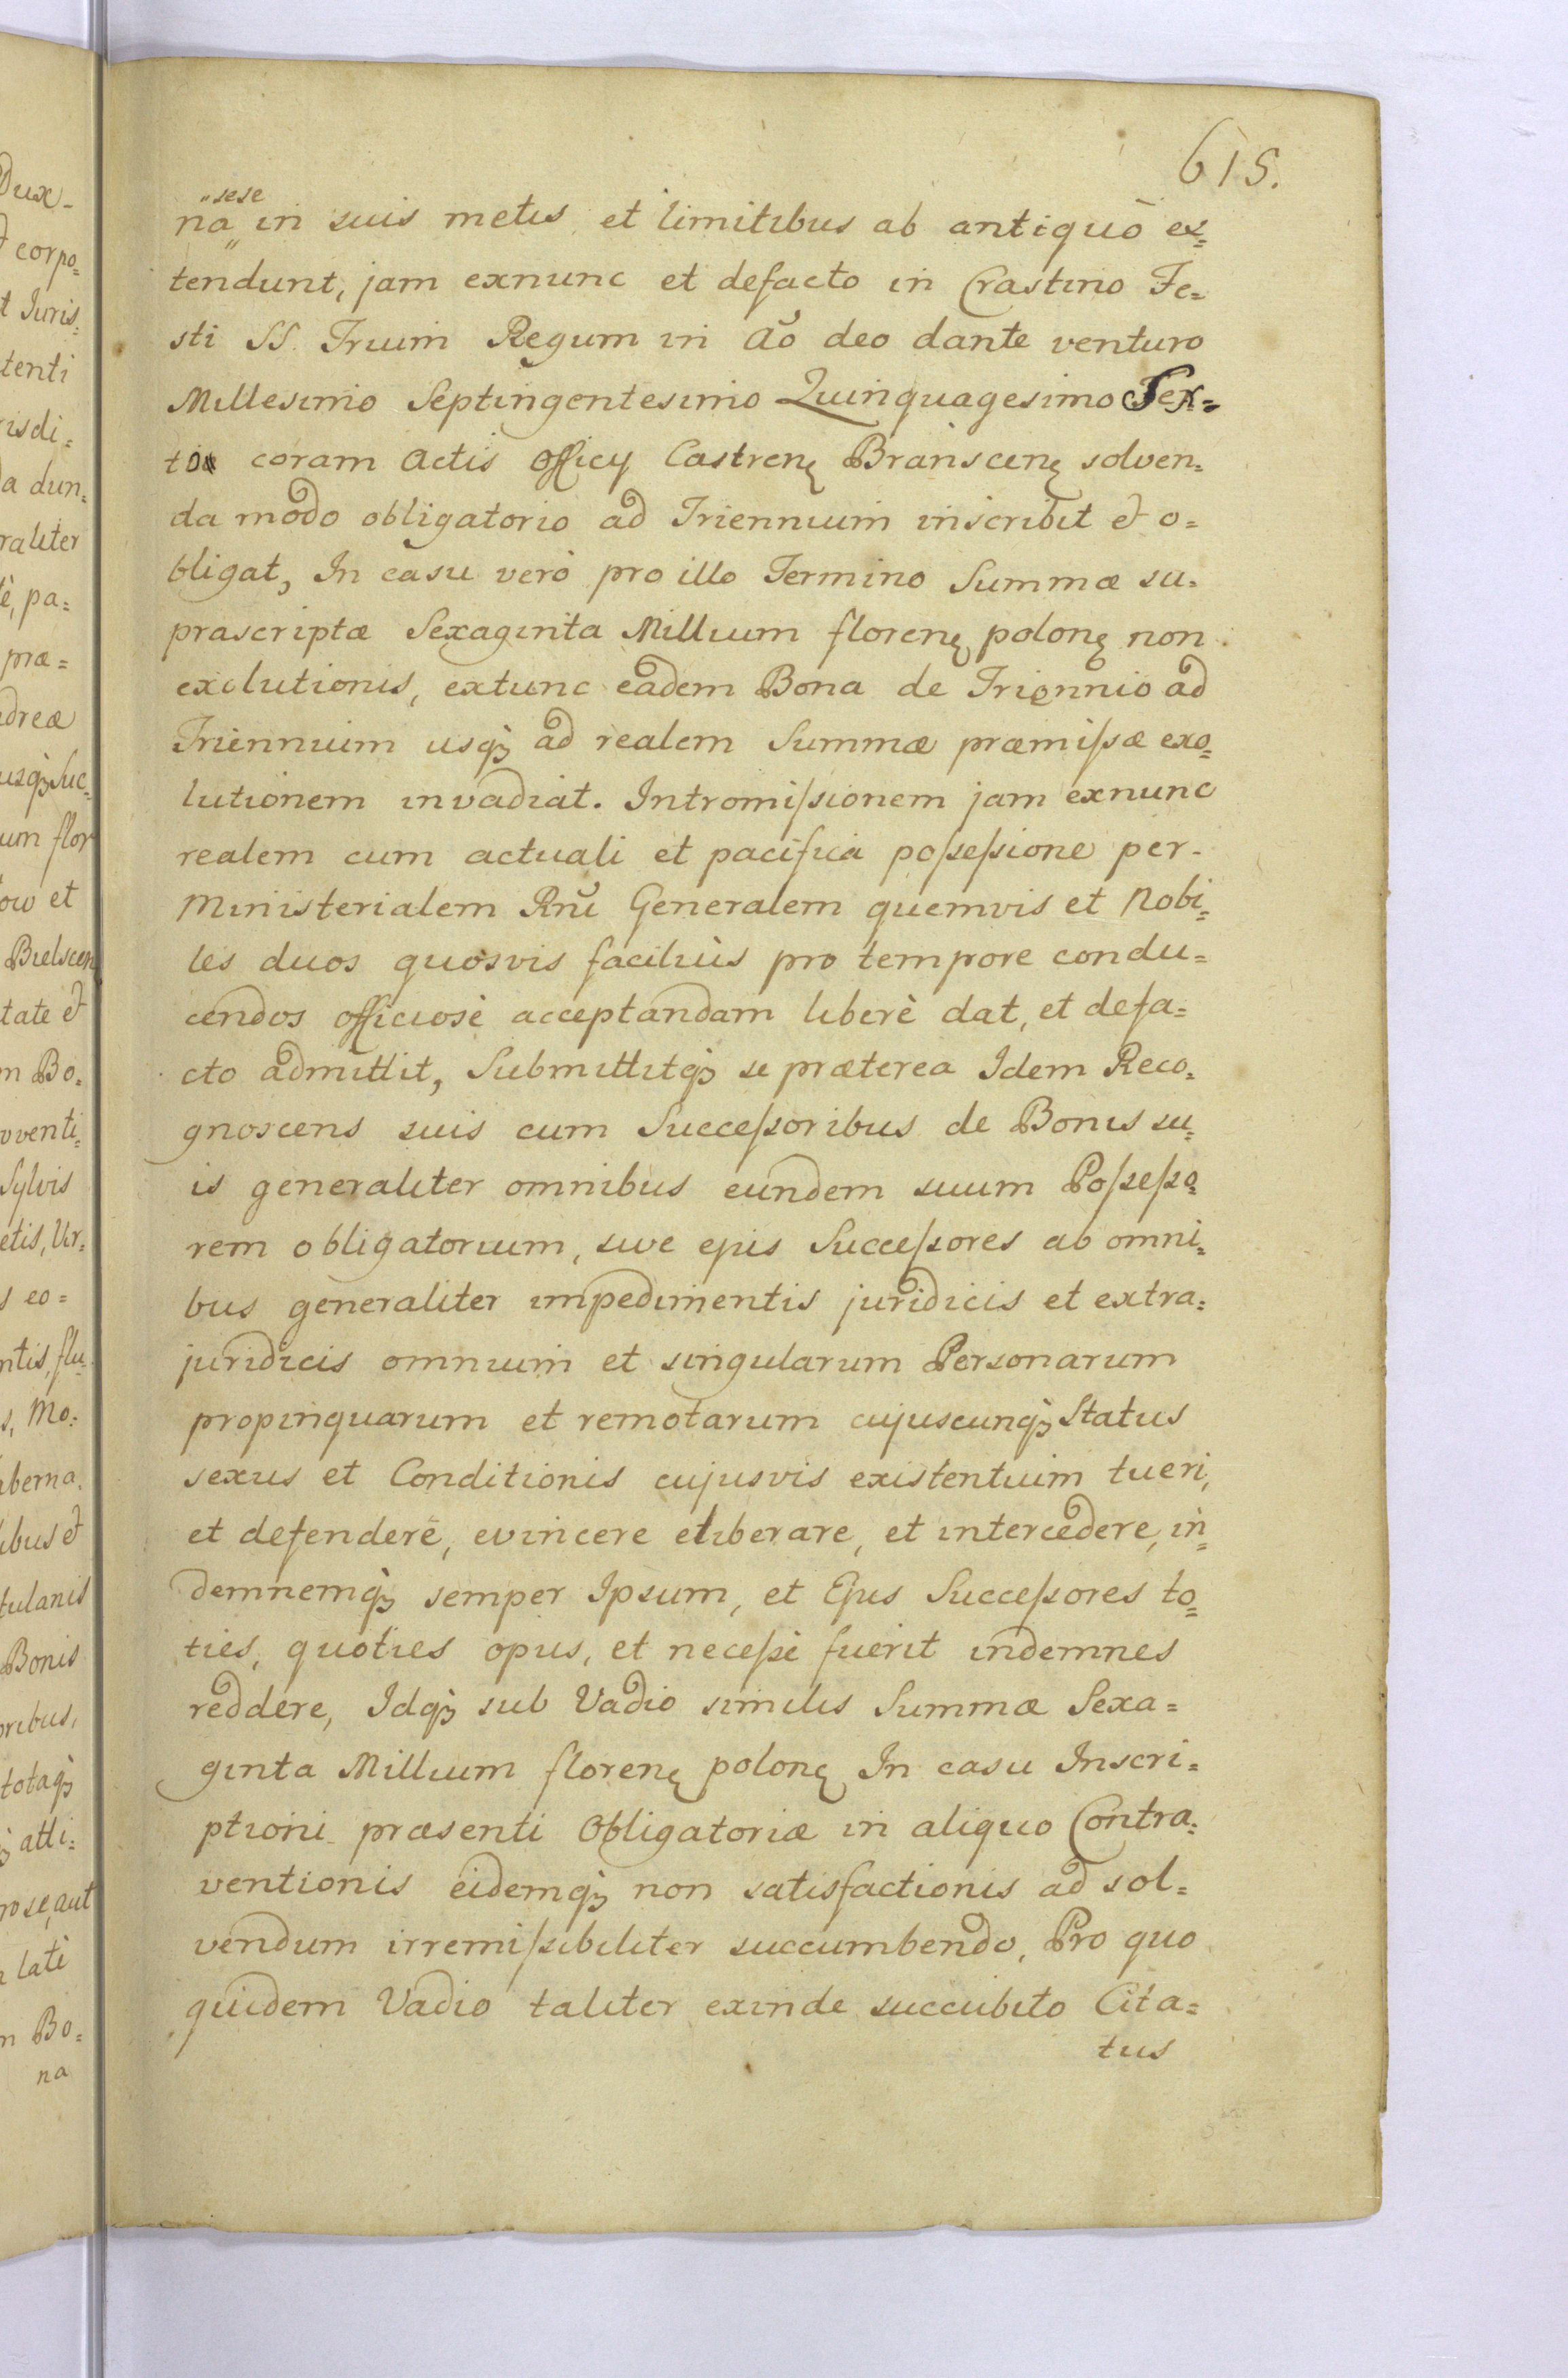 615.
„sese
na„ in suis metis et limitibus ab antiquò ex=
tendunt, jam exnunc et defacto in Crastino Fe=
sti SS. Trium Regum in Aõ deo dante venturo
Millesimo Septingentesimo Quinquagesimo Sex=
to coram Actis Officij Castrenę Branscenę solven=
da modo obligatorio ad Triennium inscribit et o=
bligat, In casu verò pro illo Termino Summæ su=
prascriptæ Sexaginta Millium florenę polonę non
exolutionis, extunc eadem Bona de Triennio ad
Triennium usqꝫ ad realem Summæ præmissæ exo=
lutionem invadiat. Intromissionem jam exnunc
realem cum actuali et pacifica possessione per
Ministerialem Rnũ Generalem quemvis et Nobi=
les duos quosvis faciliùs pro tempore condu=
cendos officiosè acceptandam liberè dat, et defa=
cto admittit, Submittitqꝫ se præterea Idem Reco=
gnoscens suis cum Successoribus de Bonis su=
is generaliter omnibus eundem suum Possesso=
rem obligatorium, sive ejus Successores ab omni=
bus generaliter impedimentis juridicis et extra=
juridicis omnium et singularum Personarum
propinquarum et remotarum cujuscunqꝫ Status
sexus et Conditionis cujusvis existentium tueri,
et defendere, evincere eliberare, et intercedere, in=
demnemqꝫ semper Ipsum, et Ejus Successores to=
ties, quoties opus, et necessè fuerit indemnes
reddere, Idqꝫ sub Vadio similis Summæ Sexa=
ginta Millium florenę polonę In casu Inscri=
ptioni præsenti Obligatoriæ in aliquo Contra=
ventionis eidemqꝫ non satisfactionis ad sol=
vendum irremissibiliter succumbendo, Pro quo
quidem Vadio taliter exinde succubito Cita=
tus